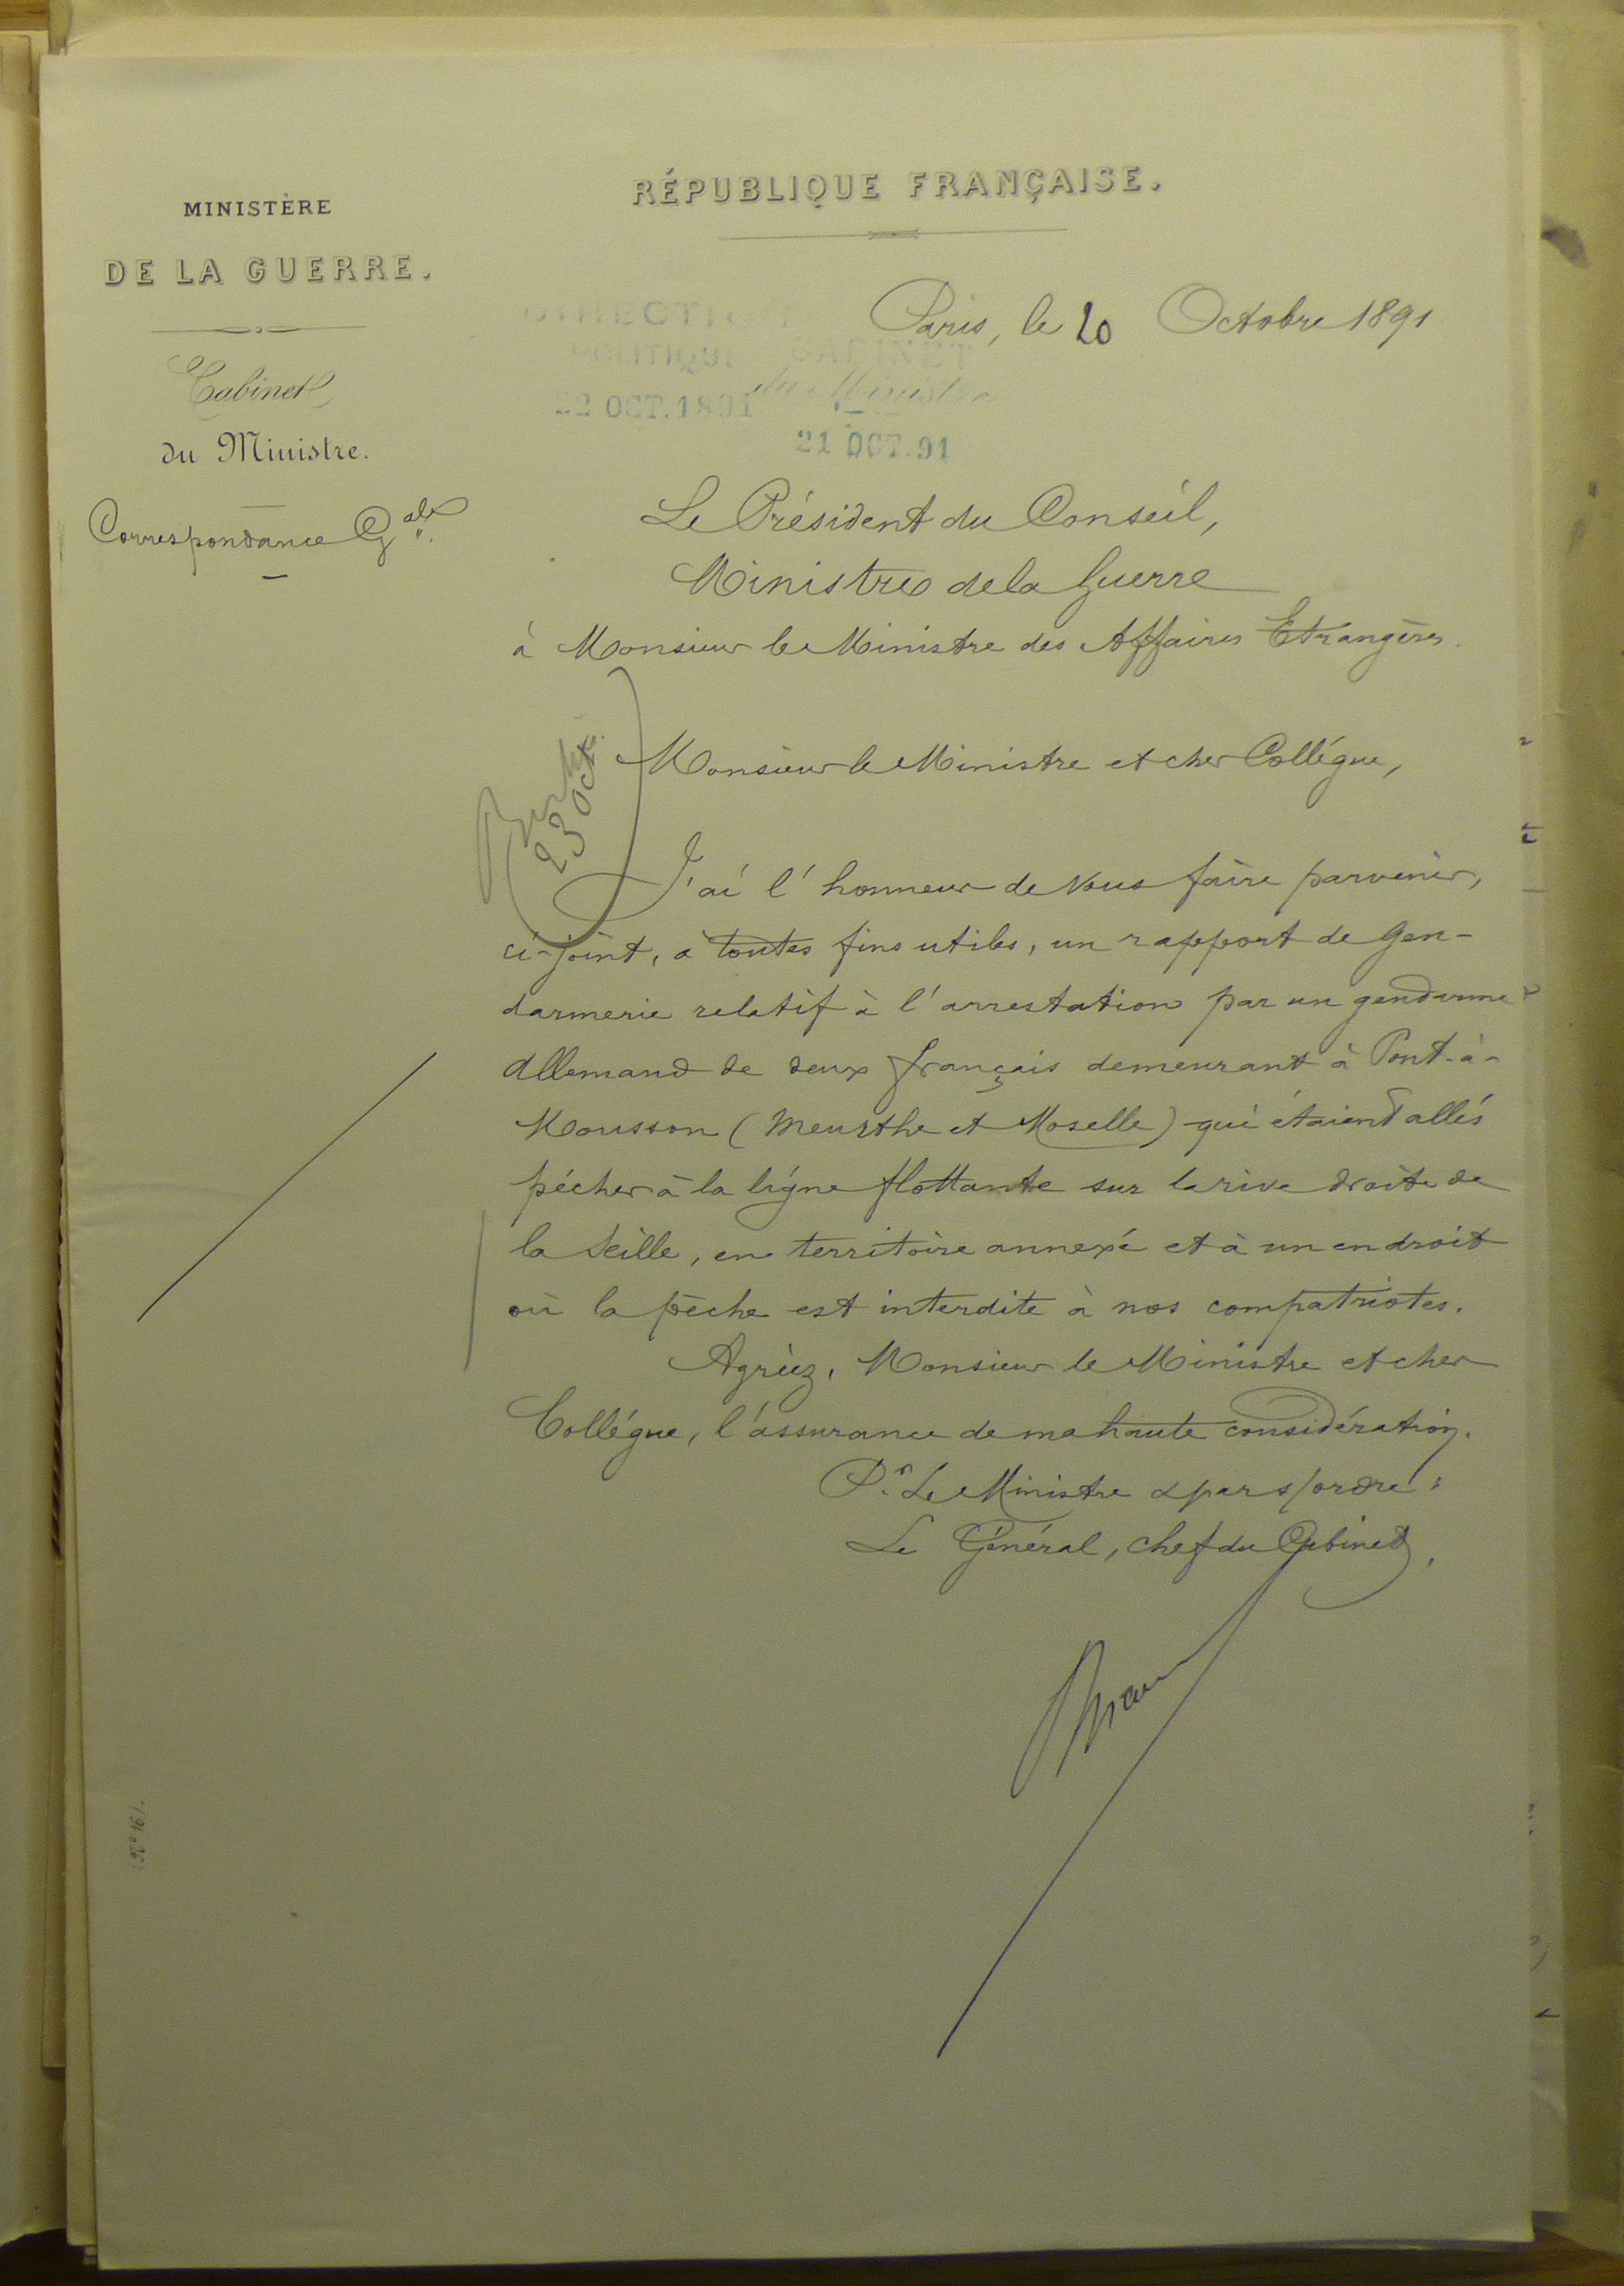 MINISTÈRE
DE LA GUERRE.
Cabinet
du Ministre.
Correspondance Gale
RÉPUBLIQUE FRANÇAISE.
Paris, le 20 Octobre 1891
DIRECTION
POLITIQUE
22 OCT. 1891
CABINET
du Ministre
21 OCT. 91
Le Président du Conseil,
Ministre de la Guerre
à Monsieur le Ministre des Affaires Etrangères.
23 Oct.
Monsieur le Ministre et cher Collégue,
J'ai l'honneur de Vous faire parvenir,
ci-joint, à toutes fins utiles, un rapport de Gen-
darmerie relatif à l'arrestation par un gendarme
allemand de deux français demeurant à Pont-à-
Mousson (Meurthe et Moselle) qui étaient allés
pêcher à la ligne flottante sur la rive droite de
la Seille, en territoire annexé et à un endroit
où la pêche est interdite à nos compatriotes.
Agréez, Monsieur le Ministre et cher
Collégue, l'assurance de ma haute considération.
Pr. Le Ministre & par s/ordre:
Le Général, chef du Cabinet,